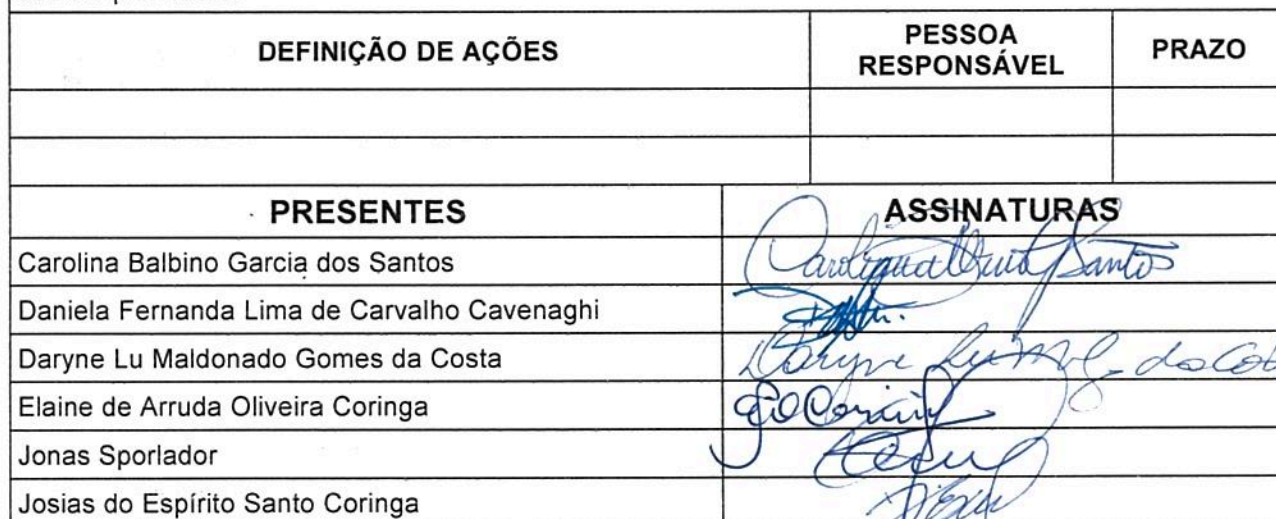 DEFINIÇÃO DE AÇÕES
PESSOA
RESPONSÁVEL
PRAZO
PRESENTES
ASSINATURAS
Carolina Balbino Garcia dos Santos
Santos
Daniela Fernanda Lima de Carvalho Cavenaghi
Daryne Lu Maldonado Gomes da Costa
Daryne Lu
Elaine de Arruda Oliveira Coringa
Jonas Sporlador
Josias do Espírito Santo Coringa